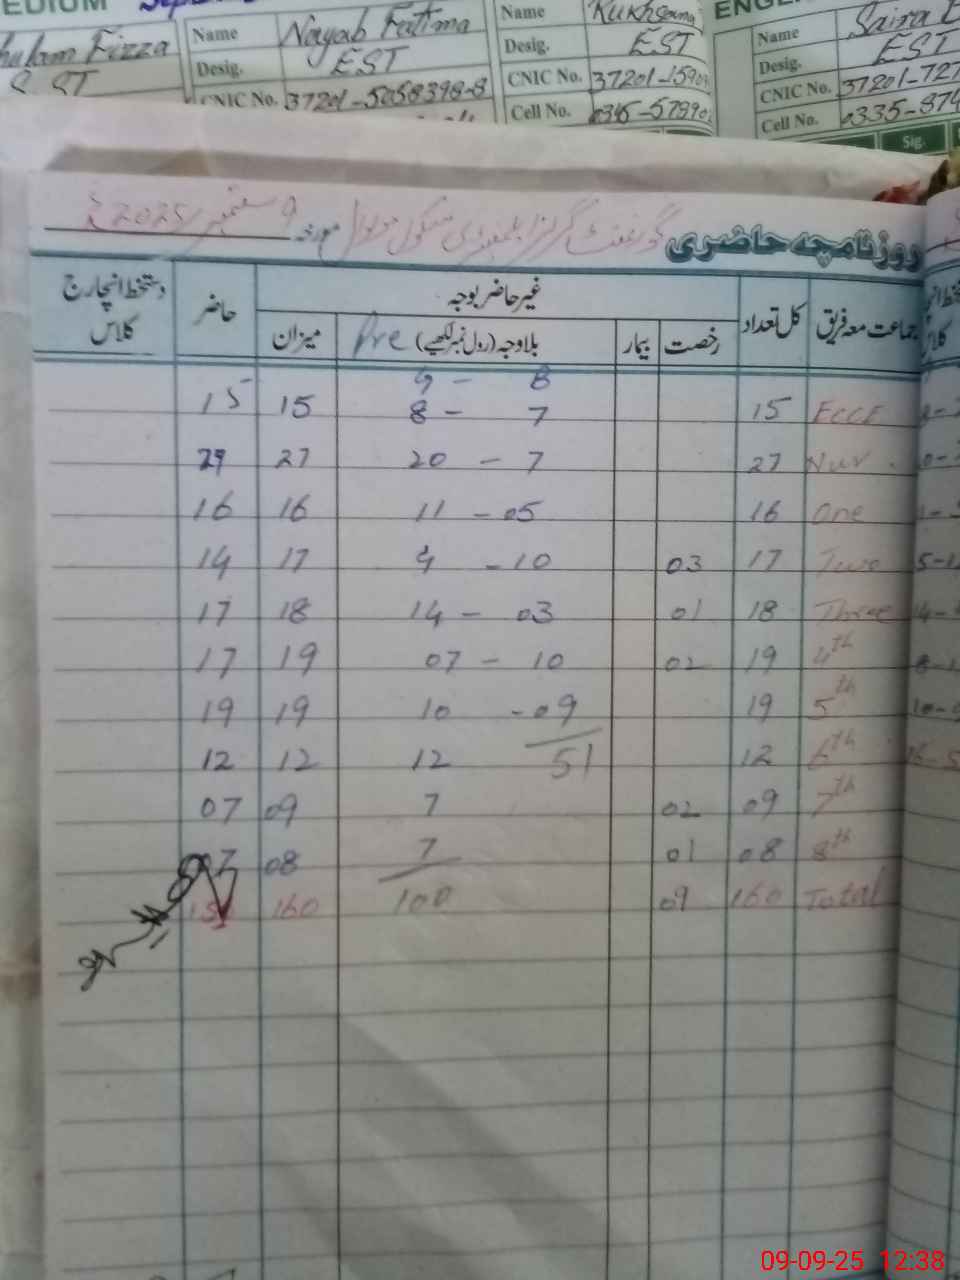 EDIUM
Fizza
SST
Name Nayab Fatima
Desig. EST
CNIC No. 37201-5058398-8
Name Rukhsana
Desig. EST
CNIC No. 37201-1590
Cell No. 0345-57890
ENGL
Name Saira
Desig. EST
CNIC No. 37201-727
Cell No. 0335-874
Sig.
روزنامچہ حاضری گورنمنٹ گرلز ایلیمنٹری سکول مورخہ 9 ستمبر 2025ء
جماعت معہ فریق کل تعداد غیر حاضر بوجہ حاضر دستخط انچارج کلاس
رخصت بیمار بلاوجہ (رول نمبر لکھیے) Pre میزان
9 - 8
15 15 8 - 7 15 ECCE
27 27 20 - 7 27 Nur
16 16 11 - 05 16 One
14 17 9 - 10 03 17 Two
17 18 14 - 03 01 18 Three
17 19 07 - 10 02 19 4th
19 19 10 - 09 19 5th
12 12 12 51 12 6th
07 09 7 02 09 7th
07 08 7 01 08 8th
151 160 100 09 160 Total
09-09-25 12:38